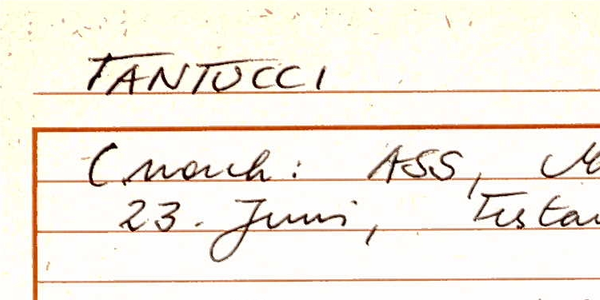 FANTUCCI
(nach: ASS, M
23. Juni, Testa